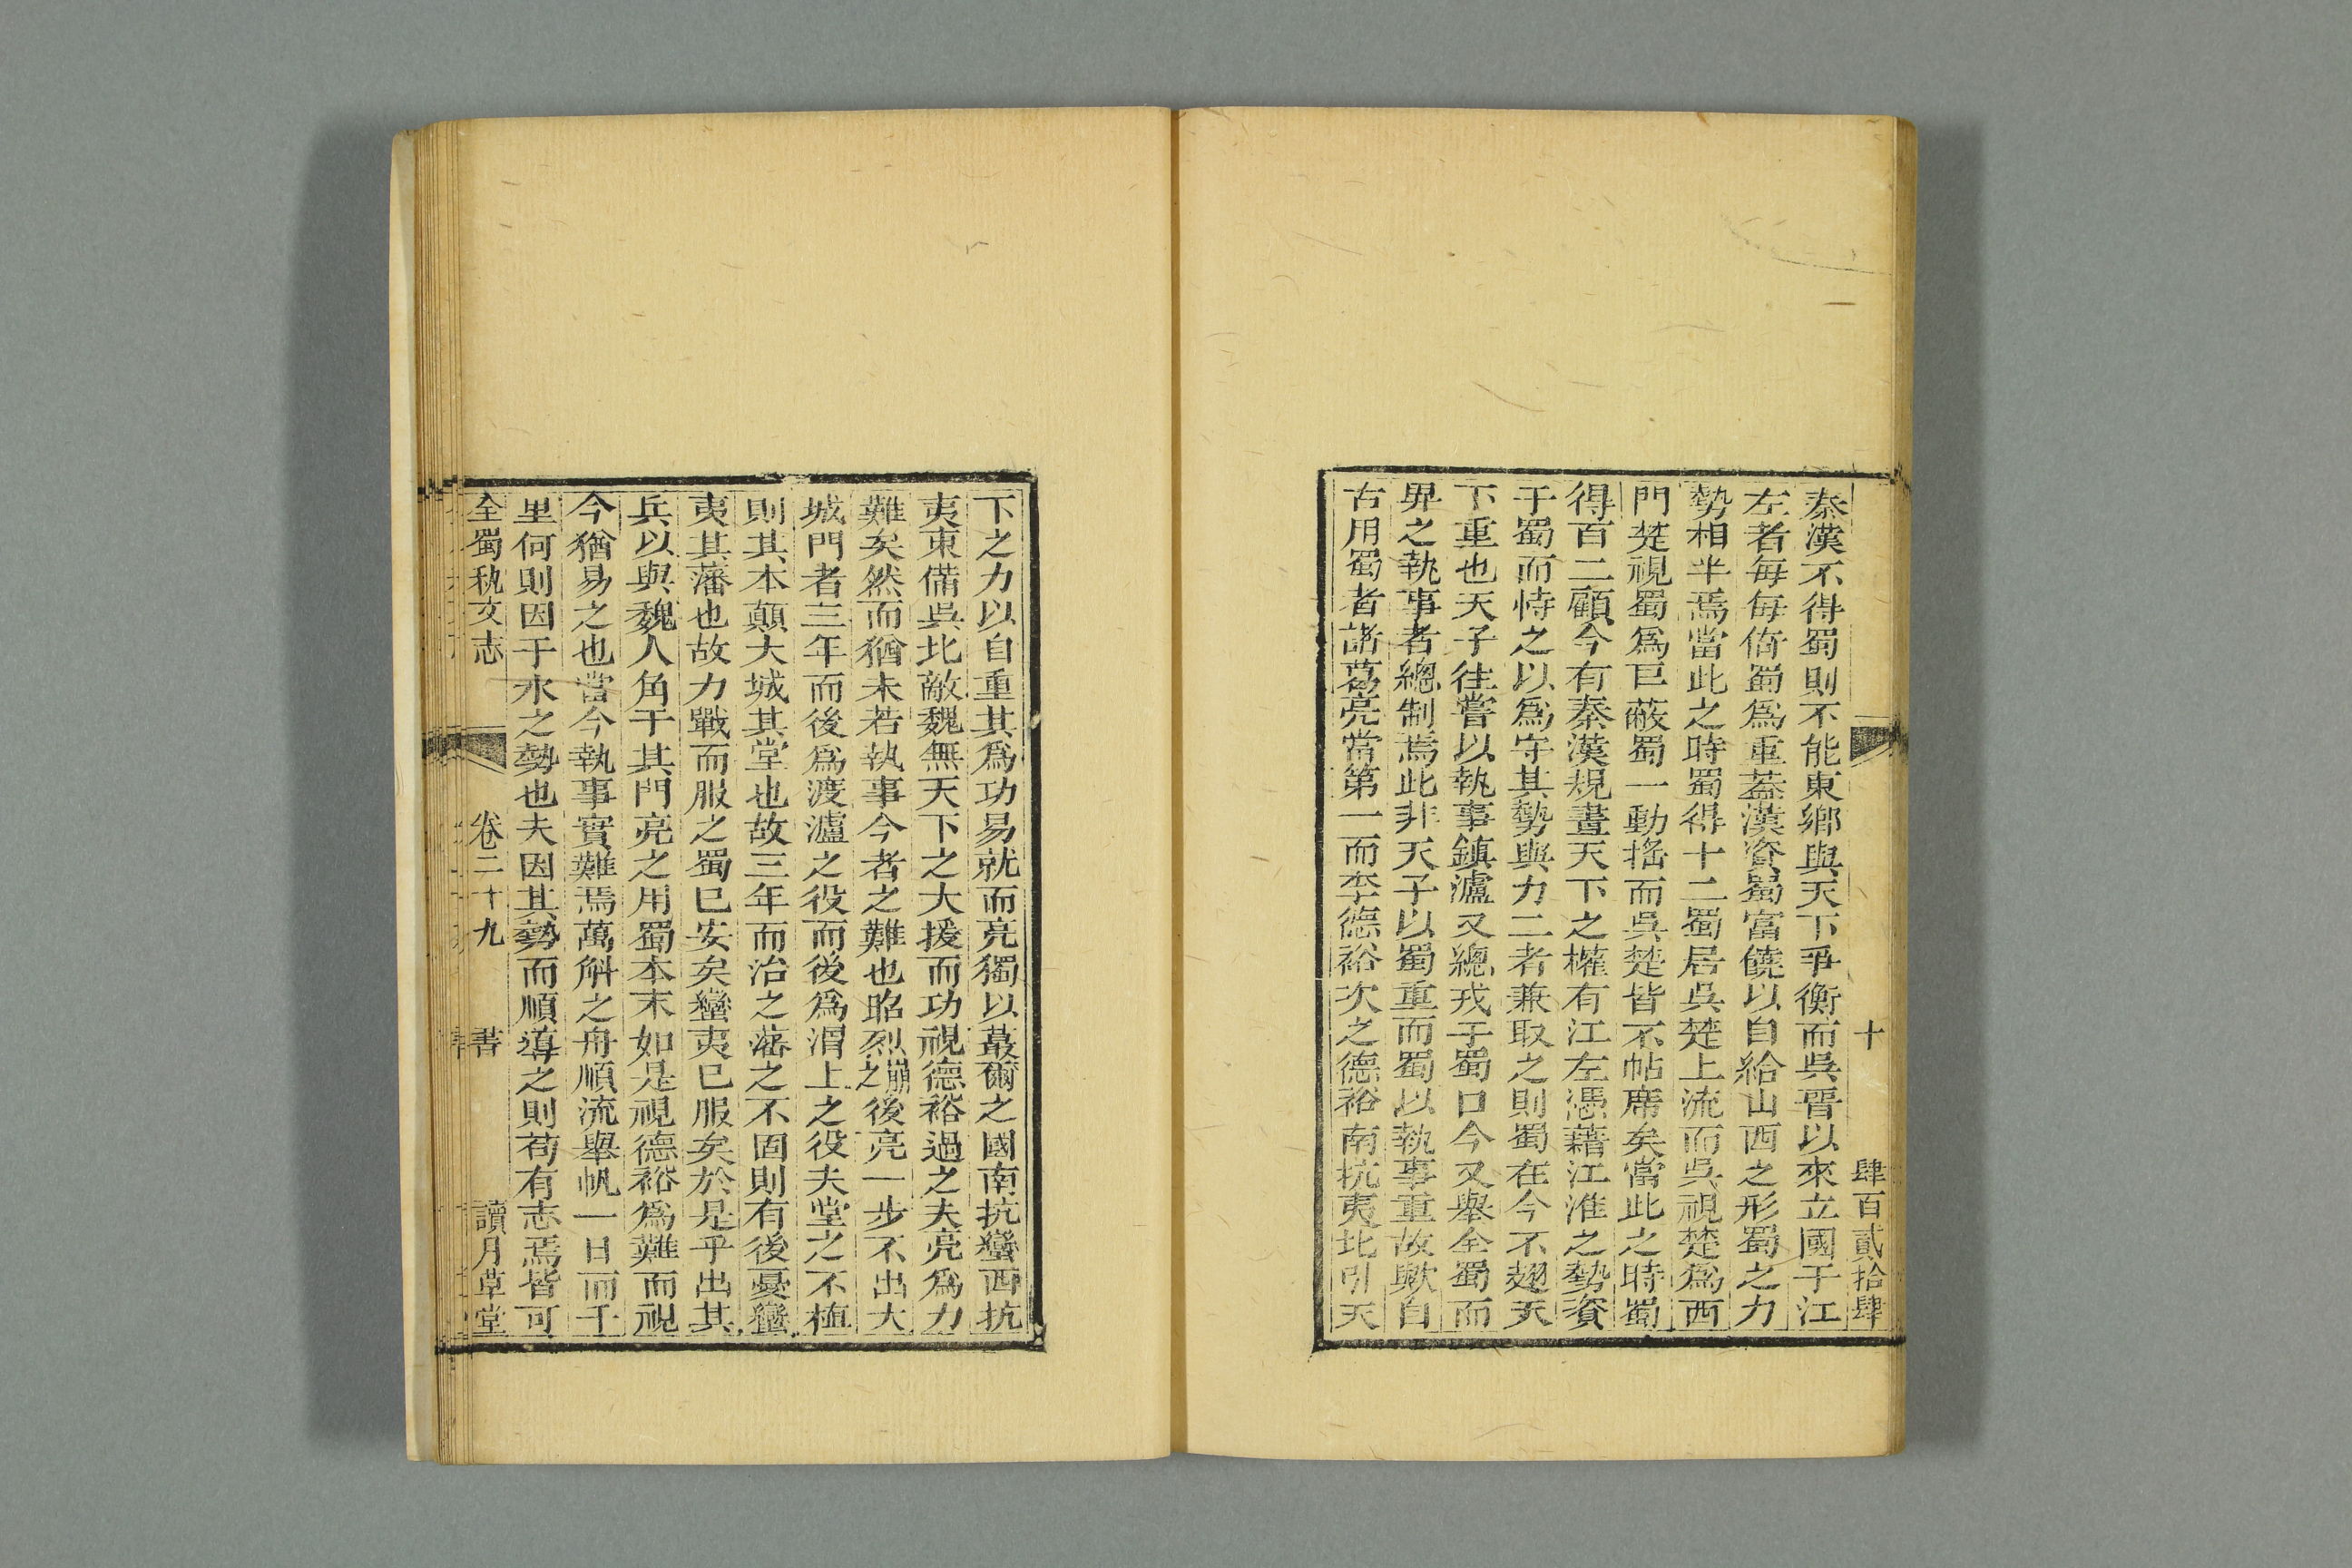 十 肆百貳拾肆
秦漢不得蜀則不能東鄉與天下爭衡而吳晉以來立國于江
左者每每倚蜀爲重蓋漢資蜀富饒以自給山西之形蜀之力
勢相半焉當此之時蜀得十二蜀居吳楚上流而吳視楚爲西
門楚視蜀爲巨蔽蜀一動搖而吳楚皆不帖席矣當此之時蜀
得百二顧今有秦漢規晝天下之權有江左憑藉江淮之勢資
于蜀而恃之以爲守其勢與力二者兼取之則蜀在今不翅天
下重也天子往嘗以執事鎮瀘又總戎于蜀口今又舉全蜀而
畀之執事者總制焉此非天子以蜀重而蜀以執事重故歟自
古用蜀者諸葛亮當第一而李德裕次之德裕南抗夷北引天
下之力以自重其爲功易就而亮獨以蕞爾之國南抗蠻西抗
夷東備吳北敵魏無天下之大援而功視德裕過之夫亮爲力
難矣然而猶未若執事今者之難也昭烈崩之後亮一步不出大
城門者三年而後爲渡瀘之役而後爲渭上之役夫堂之不植
則其本顛大城其堂也故三年而治之藩之不固則有後憂蠻
夷其藩也故力戰而服之蜀巳安矣蠻夷巳服矣於是乎出其
兵以與魏人角于其門亮之用蜀本末如是視德裕爲難而視
今猶易之也嘗今執事實難焉萬斛之舟順流舉帆一日而千
里何則因于水之勢也夫因其勢而順導之則苟有志焉皆可
全蜀秇文志 卷二十九 書 讀月草堂